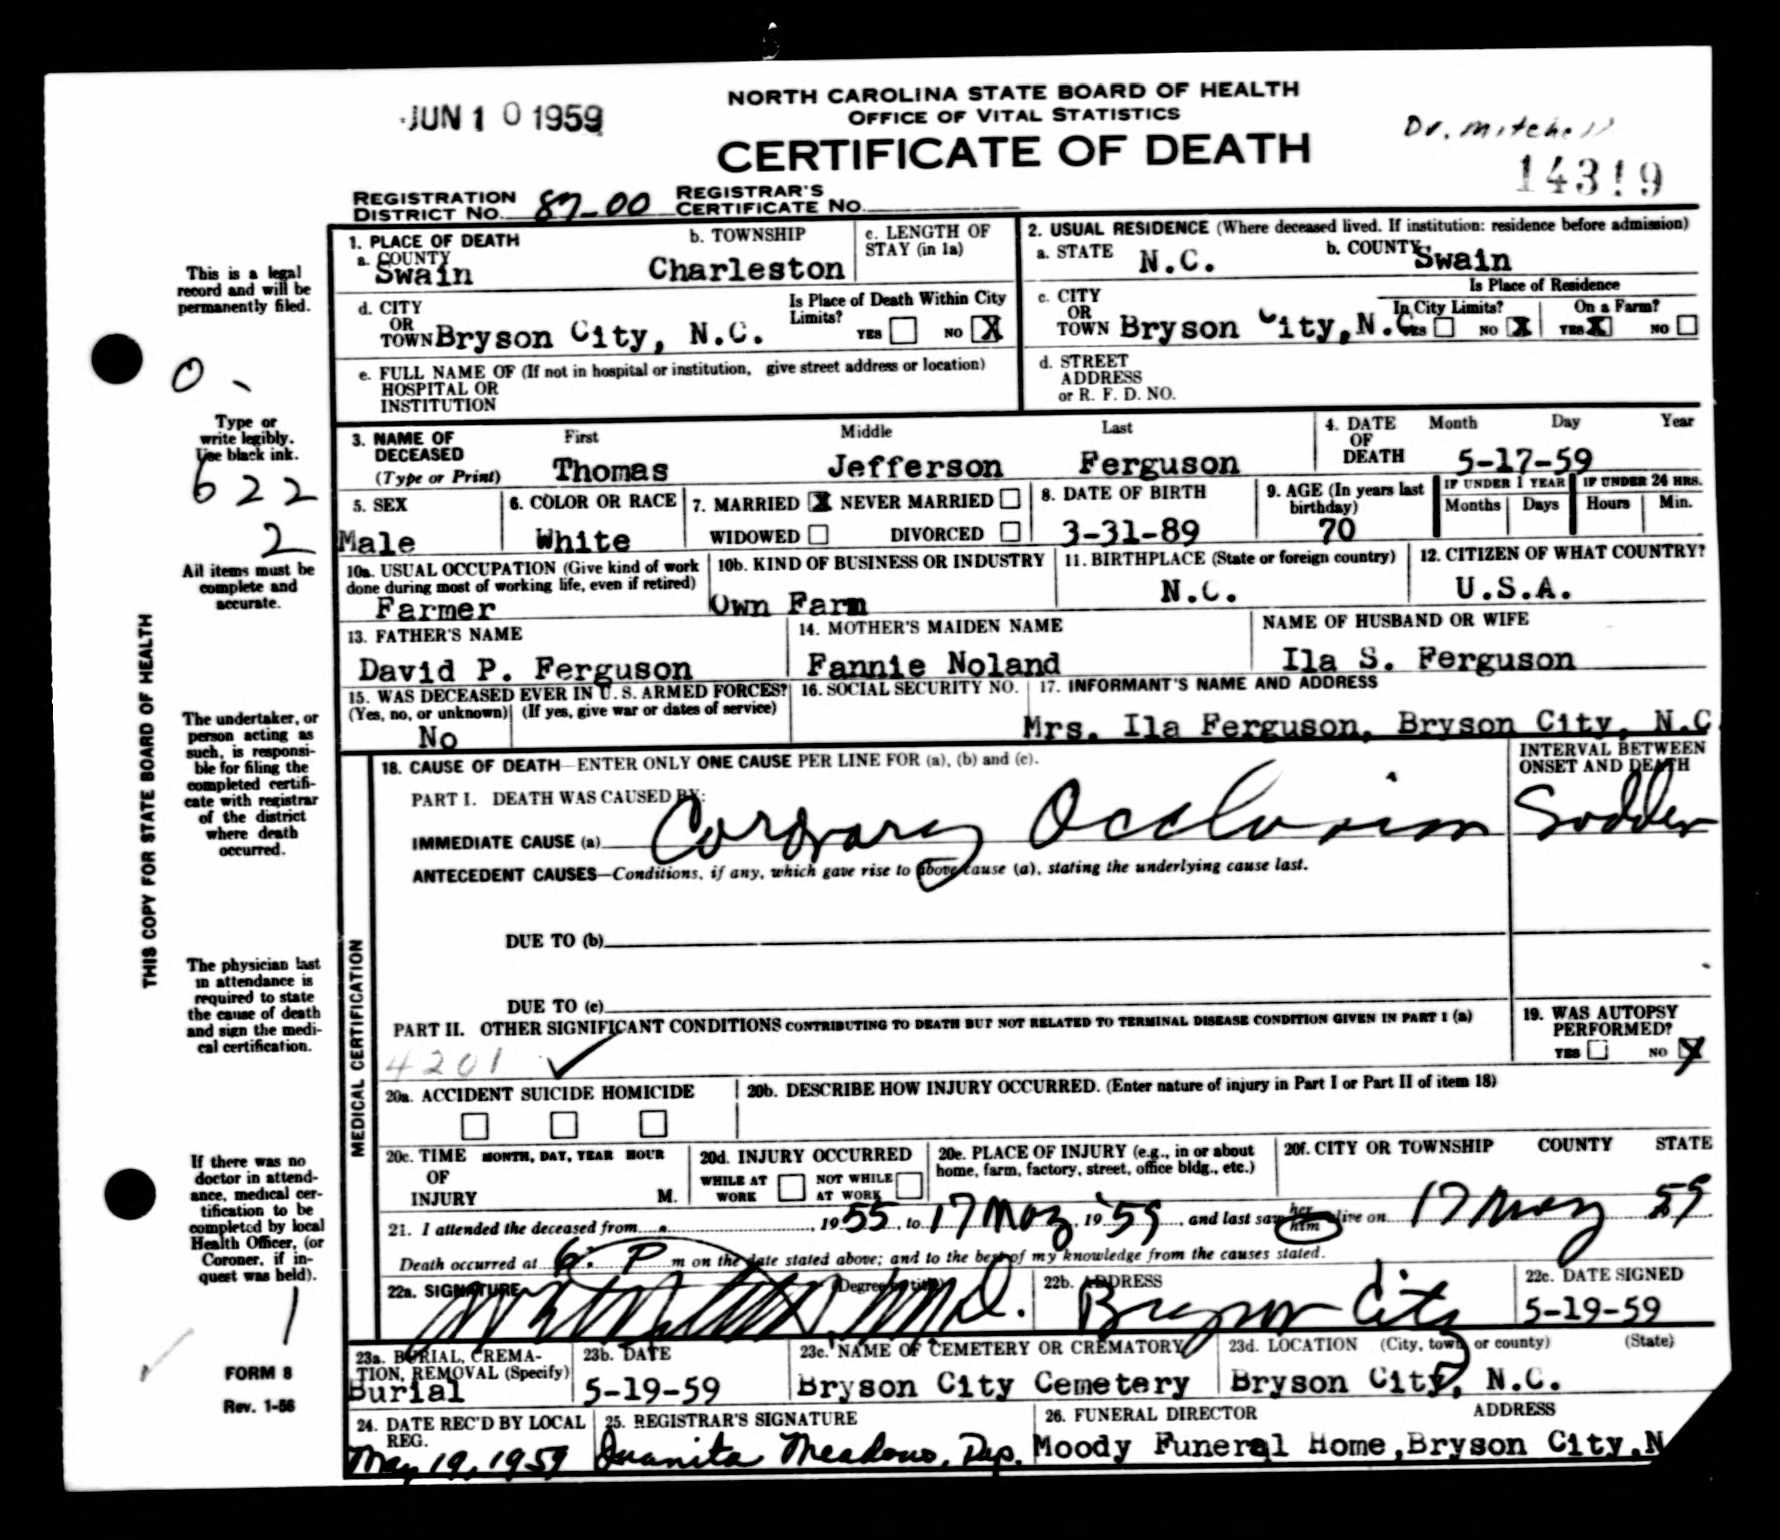 JUN 10 1959
NORTH CAROLINA STATE BOARD OF HEALTH
OFFICE OF VITAL STATISTICS
CERTIFICATE OF DEATH
Dr. Mitchell
14319
REGISTRATION DISTRICT NO. 87-00 REGISTRAR'S CERTIFICATE NO.
This is a legal
record and will be
permanently filed.
0
Type or
write legibly.
Use black ink.
622
2
All items must be
complete and
accurate.
THIS COPY FOR STATE BOARD OF HEALTH
The undertaker, or
person acting as
such, is responsi-
ble for filing the
completed certifi-
cate with registrar
of the district
where death
occurred.
The physician last
in attendance is
required to state
the cause of death
and sign the medi-
cal certification.
If there was no
doctor in attend-
ance, medical cer-
tification to be
completed by local
Health Officer, (or
Coroner, if in-
quest was held).
1
FORM 8
Rev. 1-56
1. PLACE OF DEATH
a. COUNTY Swain
b. TOWNSHIP Charleston
c. LENGTH OF STAY (in 1a)
d. CITY OR TOWN Bryson City, N.C.
Is Place of Death Within City Limits? YES NO X
e. FULL NAME OF (If not in hospital or institution, give street address or location)
HOSPITAL OR
INSTITUTION
2. USUAL RESIDENCE (Where deceased lived. If institution: residence before admission)
a. STATE N.C. b. COUNTY Swain
c. CITY OR TOWN Bryson City, N.C.
Is Place of Residence
In City Limits? YES NO X On a Farm? YES X NO
d. STREET
ADDRESS
or R. F. D. NO.
3. NAME OF DECEASED (Type or Print) First Thomas Middle Jefferson Last Ferguson
4. DATE OF DEATH Month Day Year 5-17-59
5. SEX Male
6. COLOR OR RACE White
7. MARRIED X NEVER MARRIED
WIDOWED DIVORCED
8. DATE OF BIRTH 3-31-89
9. AGE (In years last birthday) 70
IF UNDER 1 YEAR Months Days
IF UNDER 24 HRS. Hours Min.
10a. USUAL OCCUPATION (Give kind of work done during most of working life, even if retired) Farmer
10b. KIND OF BUSINESS OR INDUSTRY Own Farm
11. BIRTHPLACE (State or foreign country) N.C.
12. CITIZEN OF WHAT COUNTRY? U.S.A.
13. FATHER'S NAME David P. Ferguson
14. MOTHER'S MAIDEN NAME Fannie Noland
NAME OF HUSBAND OR WIFE Ila S. Ferguson
15. WAS DECEASED EVER IN U. S. ARMED FORCES?
(Yes, no, or unknown) (If yes, give war or dates of service)
No
16. SOCIAL SECURITY NO.
17. INFORMANT'S NAME AND ADDRESS
Mrs. Ila Ferguson, Bryson City, N.C
MEDICAL CERTIFICATION
18. CAUSE OF DEATH—ENTER ONLY ONE CAUSE PER LINE FOR (a), (b) and (c).
INTERVAL BETWEEN ONSET AND DEATH
PART I. DEATH WAS CAUSED BY:
IMMEDIATE CAUSE (a) Coronary Occlusion Sudden
ANTECEDENT CAUSES—Conditions, if any, which gave rise to above cause (a), stating the underlying cause last.
DUE TO (b)
DUE TO (c)
PART II. OTHER SIGNIFICANT CONDITIONS CONTRIBUTING TO DEATH BUT NOT RELATED TO TERMINAL DISEASE CONDITION GIVEN IN PART I (a)
4201
19. WAS AUTOPSY PERFORMED?
YES NO X
20a. ACCIDENT SUICIDE HOMICIDE
20b. DESCRIBE HOW INJURY OCCURRED. (Enter nature of injury in Part I or Part II of item 18)
20c. TIME OF INJURY MONTH, DAY, YEAR HOUR M.
20d. INJURY OCCURRED
WHILE AT WORK NOT WHILE AT WORK
20e. PLACE OF INJURY (e.g., in or about home, farm, factory, street, office bldg., etc.)
20f. CITY OR TOWNSHIP COUNTY STATE
21. I attended the deceased from 1955, to 17 May, 1959, and last saw her him alive on 17 May 59
Death occurred at 6: P m on the date stated above; and to the best of my knowledge from the causes stated.
22a. SIGNATURE (Degree or title) M.D.
22b. ADDRESS Bryson City
22c. DATE SIGNED 5-19-59
23a. BURIAL, CREMA-
TION, REMOVAL (Specify)
Burial
23b. DATE 5-19-59
23c. NAME OF CEMETERY OR CREMATORY Bryson City Cemetery
23d. LOCATION (City, town, or county) (State)
Bryson City, N.C.
24. DATE REC'D BY LOCAL REG. May 19, 1959
25. REGISTRAR'S SIGNATURE Juanita Meadows, Dep.
26. FUNERAL DIRECTOR ADDRESS
Moody Funeral Home, Bryson City, N